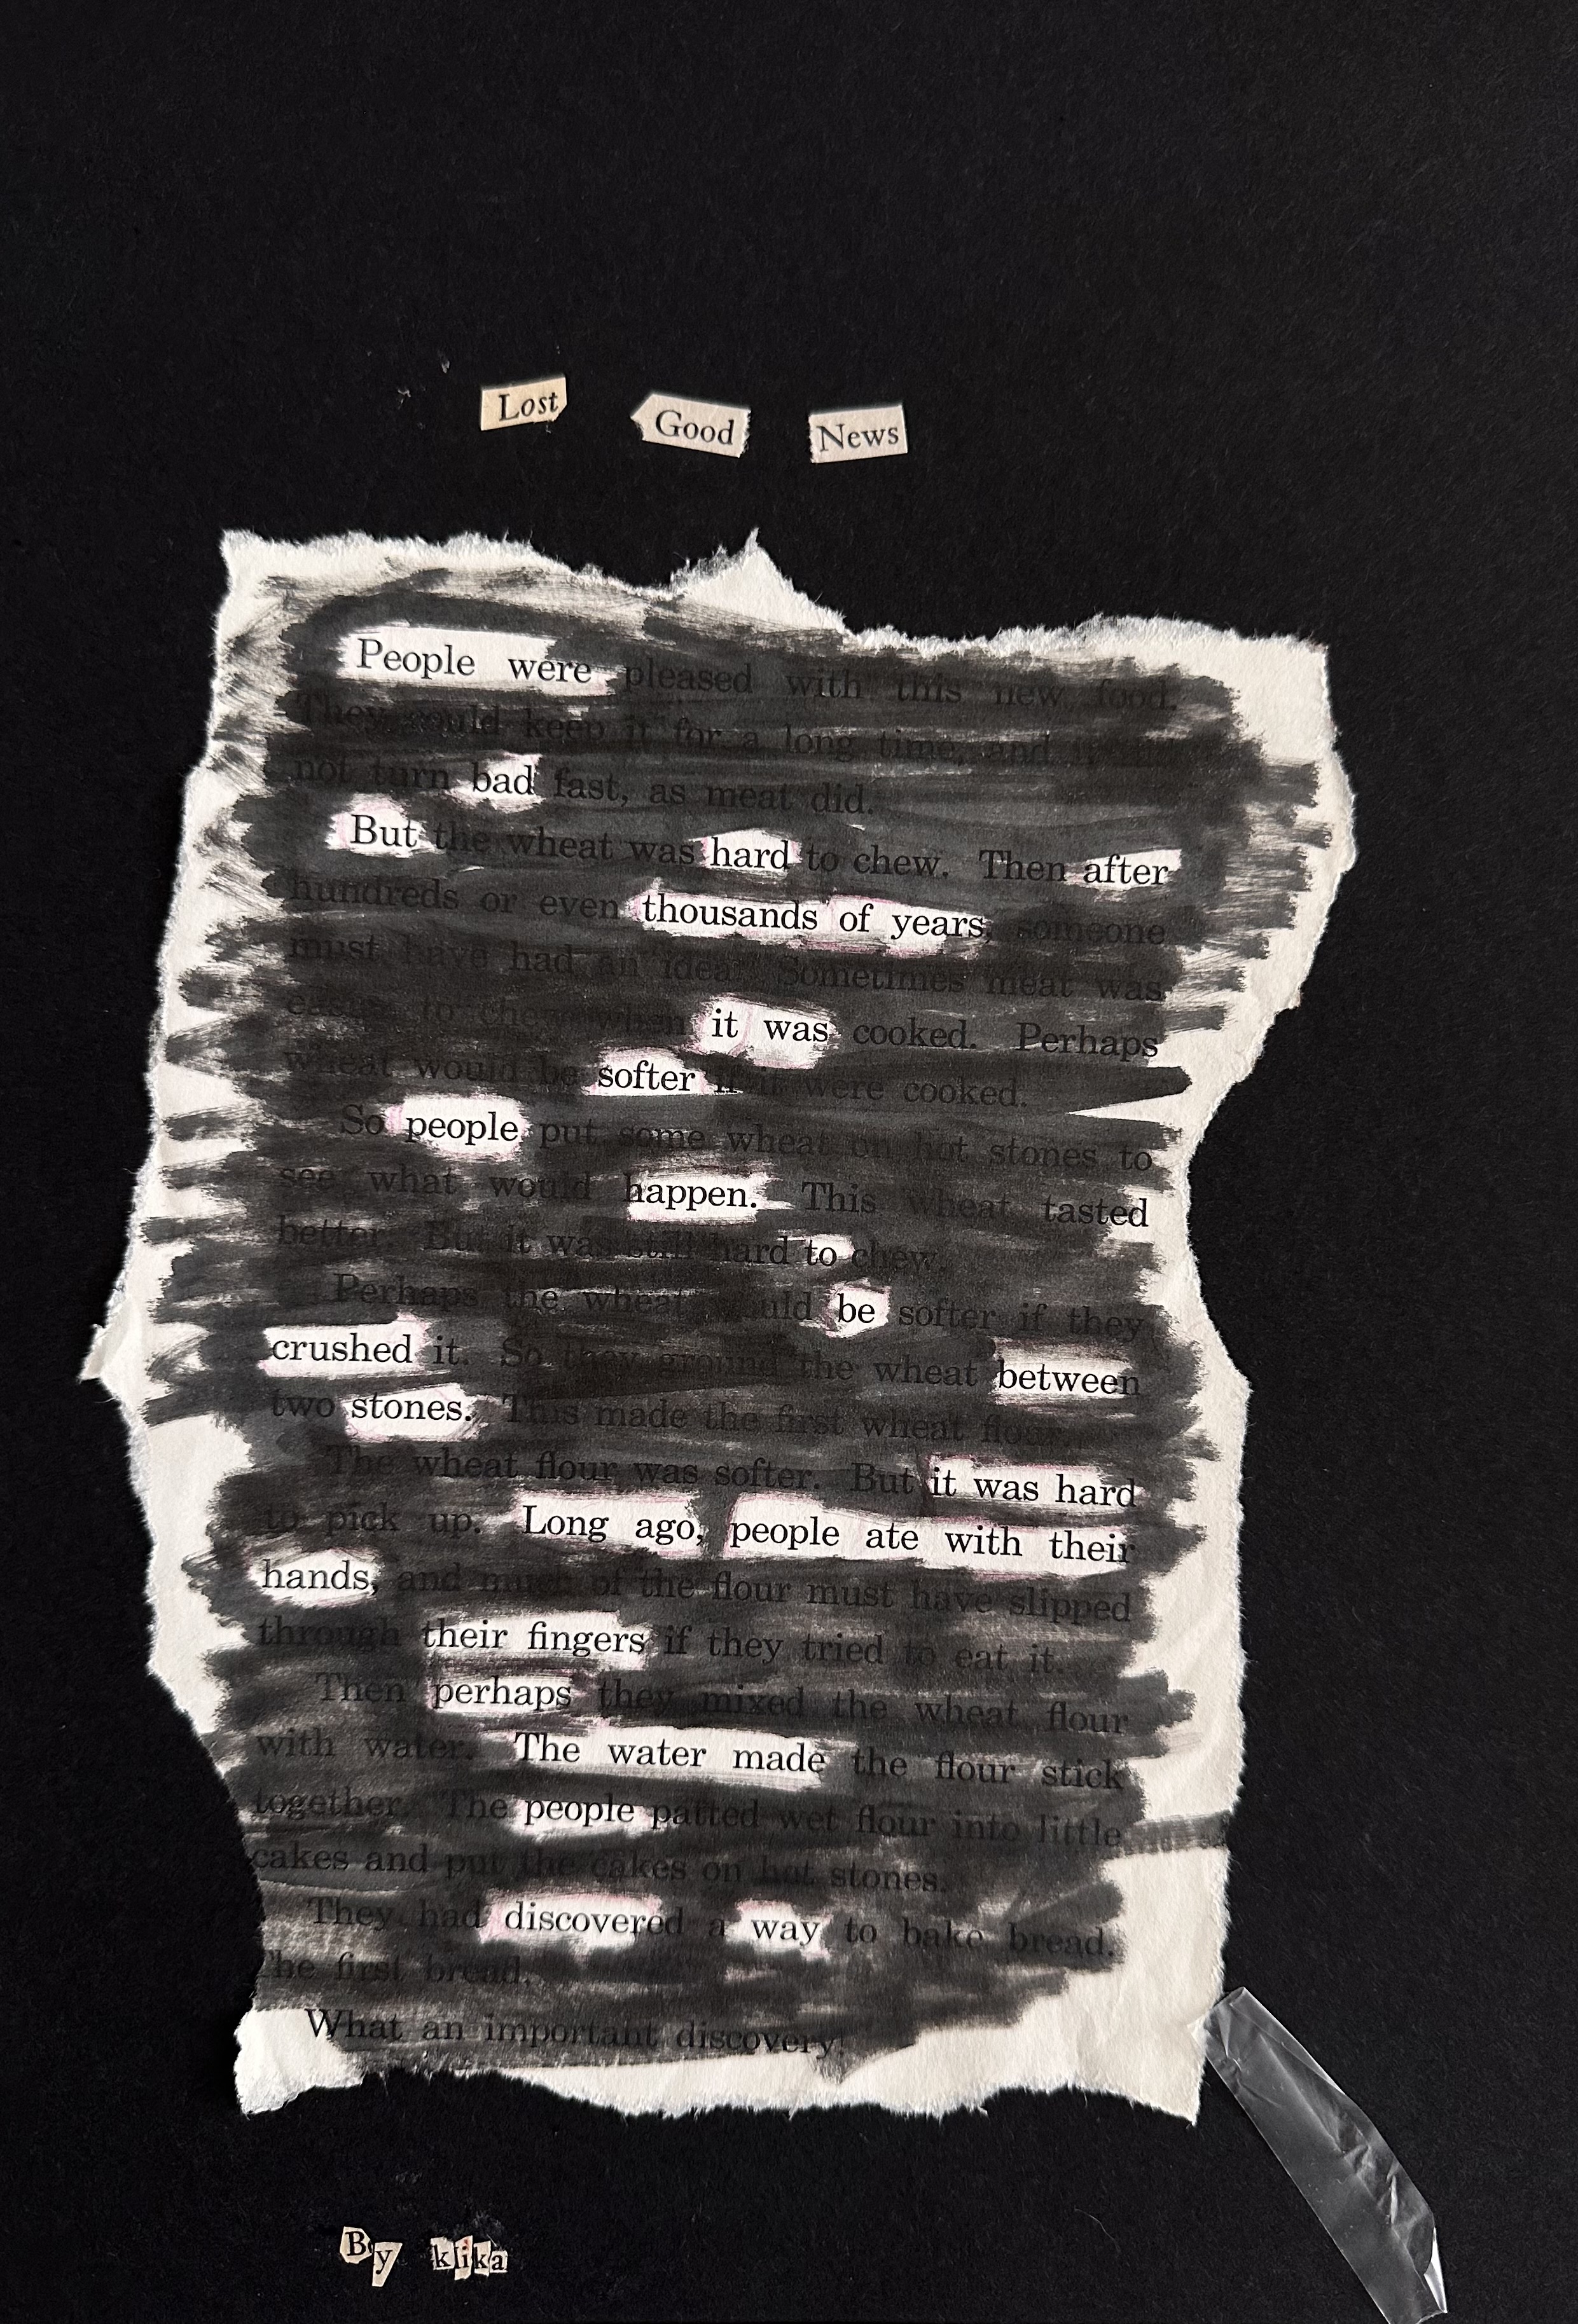 Lost Good News
People were pleased with this new food.
They could keep it for a long time, and
not turn bad fast, as meat did.
But the wheat was hard to chew. Then after
hundreds or even thousands of years, someone
must have had an idea. Sometimes meat was
easier to chew when it was cooked. Perhaps
wheat would be softer if it were cooked.
So people put some wheat on hot stones to
see what would happen. This wheat tasted
better. But it was still hard to chew.
Perhaps the wheat would be softer if they
crushed it. So they ground the wheat between
two stones. This made the first wheat flour.
The wheat flour was softer. But it was hard
to pick up. Long ago, people ate with their
hands, and much of the flour must have slipped
through their fingers if they tried to eat it.
Then perhaps they mixed the wheat flour
with water. The water made the flour stick
together. The people patted wet flour into little
cakes and put the cakes on hot stones.
They had discovered a way to bake bread.
The first bread.
What an important discovery!
By klika